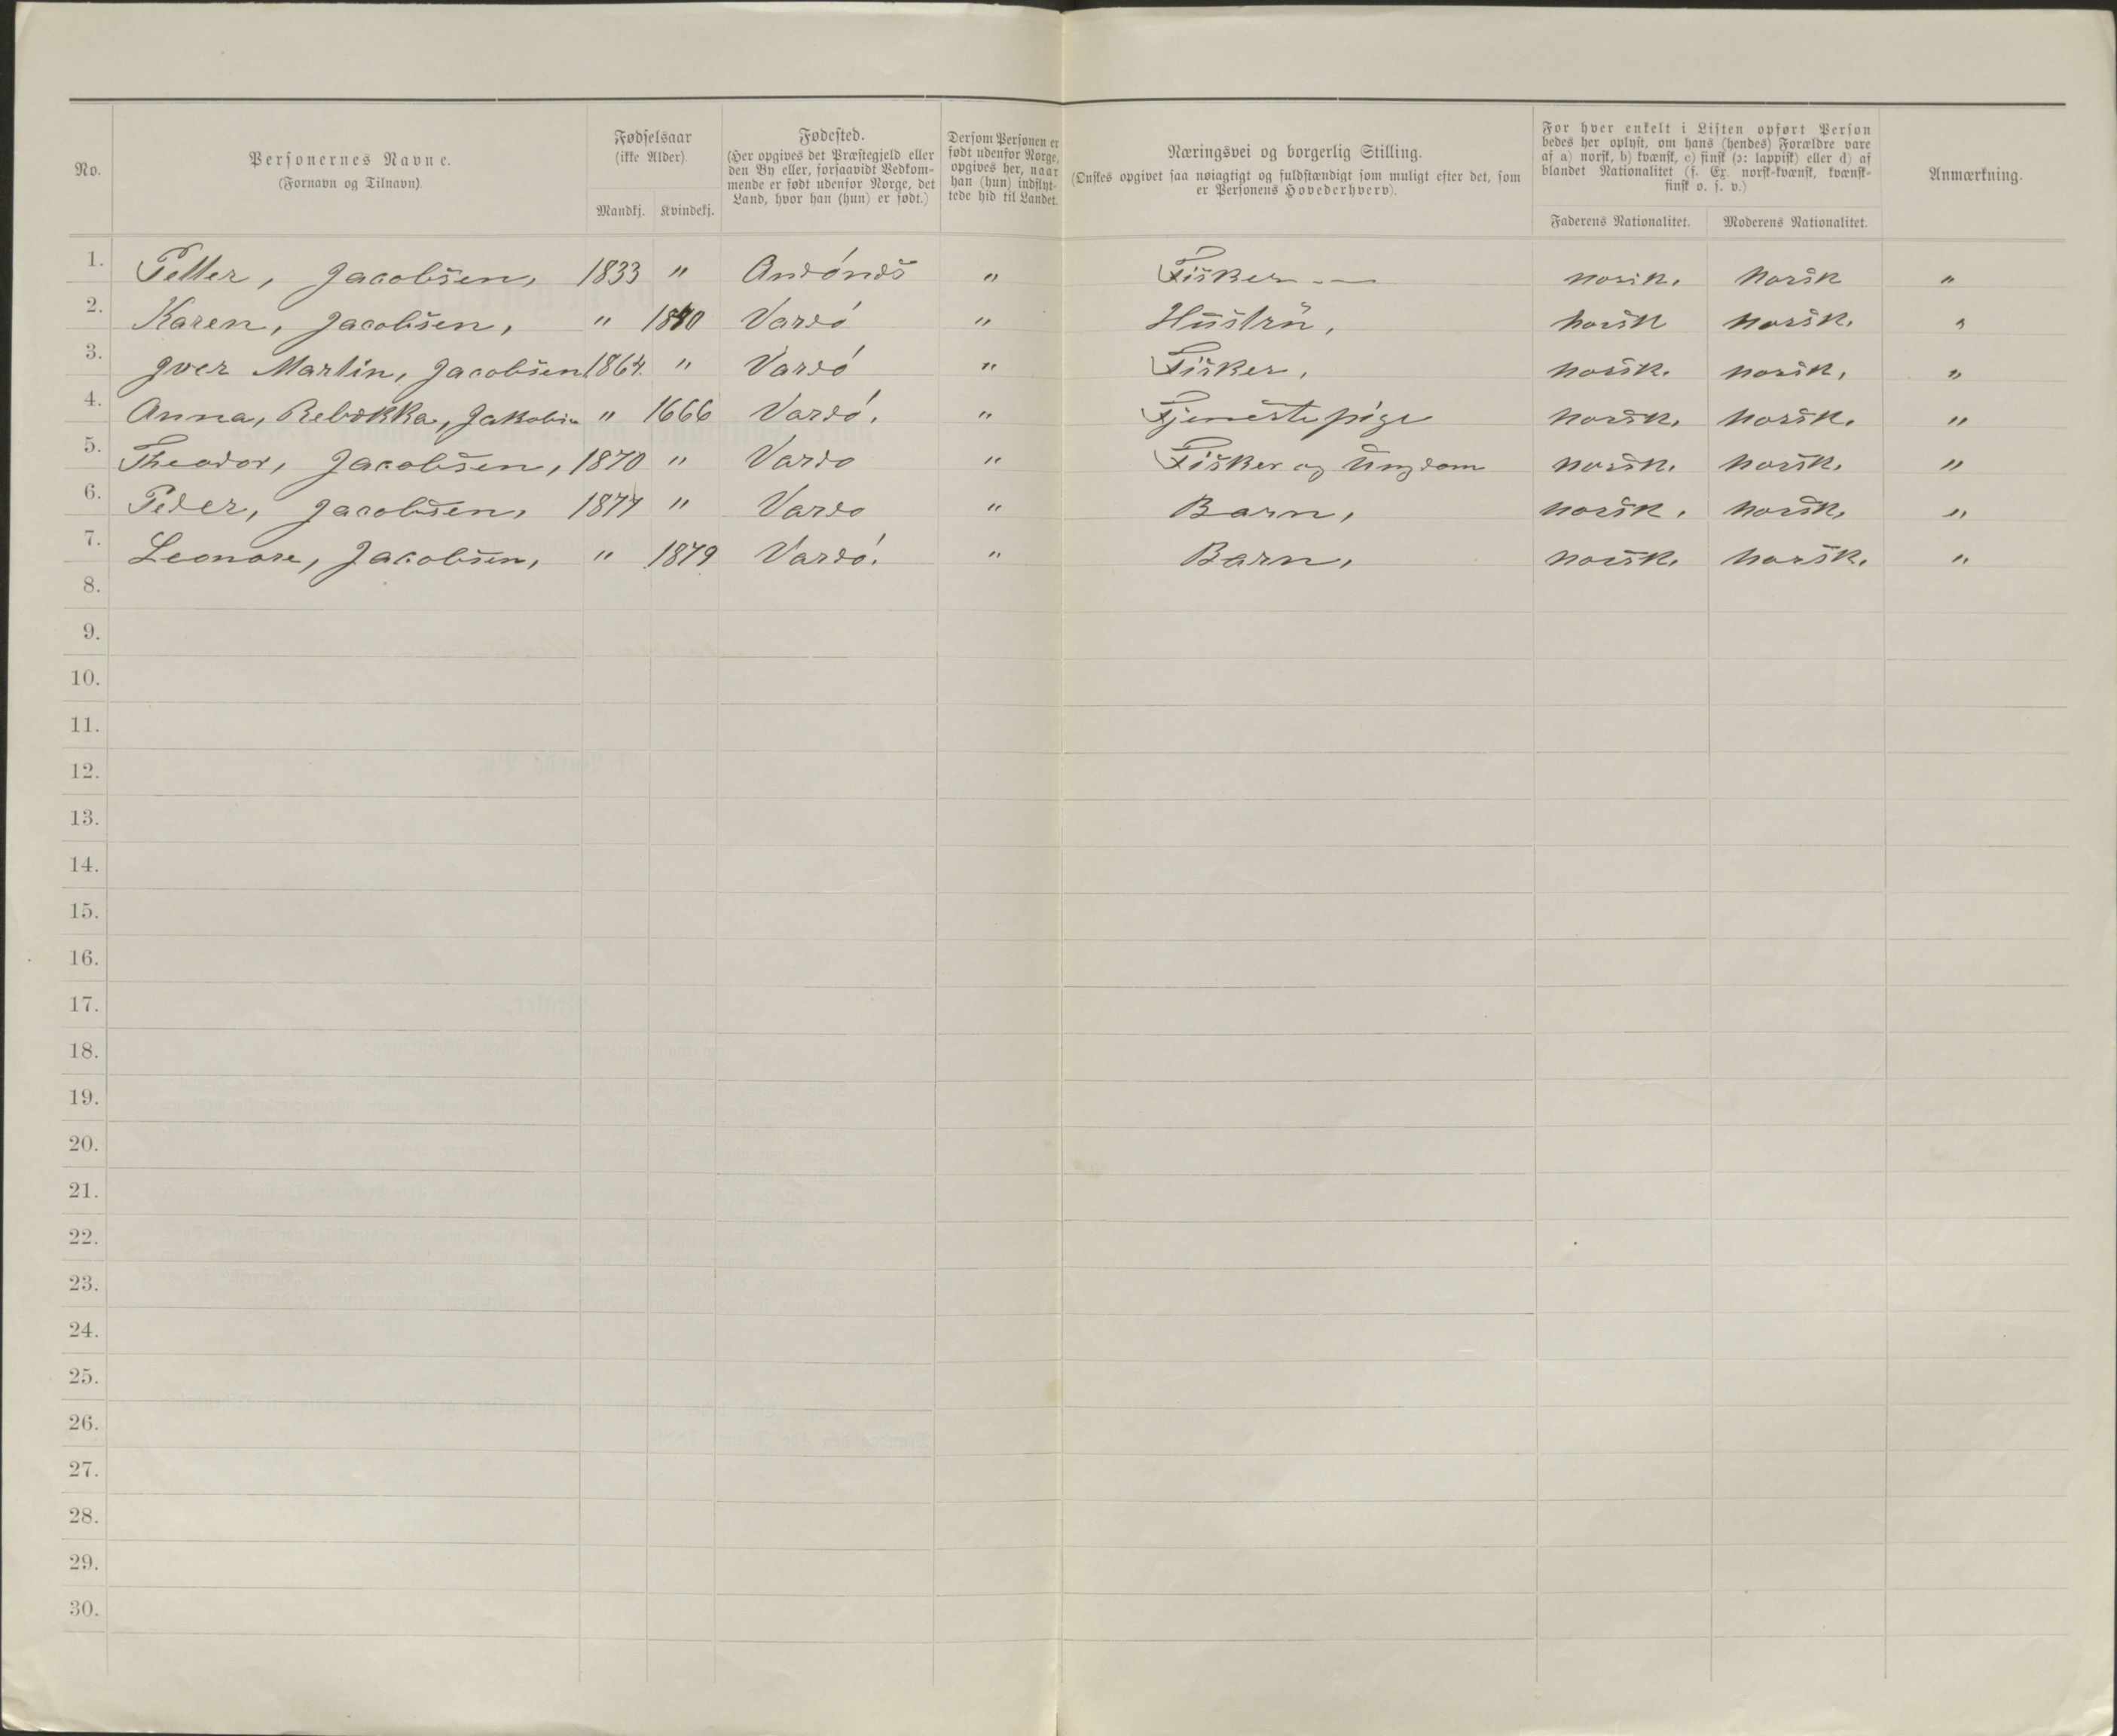 No.
Personernes Navne.
(Fornavn og Tilnavn).
Fødselsaar
(ikke Alder).
Mandkj. Kvindekj.
Fødested.
(Her opgives det Præstegjeld eller
den By eller, forsaavidt Vedkom-
mende er født udenfor Norge, det
Land, hvor han (hun) er født.)
Dersom Personen er
født udenfor Norge,
opgives her, naar
han (hun) indflyt-
tede hid til Landet.
Næringsvei og borgerlig Stilling.
(Ønskes opgivet saa nøiagtigt og fuldstændigt som muligt efter det, som
er Personens Hovederhverv).
For hver enkelt i Listen opført Person
bedes her oplyst, om hans (hendes) Forældre vare
af a) norsk, b) kvænsk, c) finsk (ɔ: lappisk) eller d) af
blandet Nationalitet (f. Ex. norsk-kvænsk, kvænsk-
finsk o. s. v.)
Faderens Nationalitet. Moderens Nationalitet.
Anmærkning.
1. Petter, Jacobsen, 1833 " Andónes " Fisker norsk. norsk "
2. Karen, Jacobsen, " 1840 Vardó " Hustru, norsk norsk. "
3. Iver Martin, Jacobsen 1864. " Vardó " Fisker, norsk. norsk, "
4. Anna, Rebekka, Jakobsen " 1666 Vardó. " Tjenestepige norsk. norsk. "
5. Theodor, Jacobsen, 1870 " Vardo " Fisker og Ungdom norsk. norsk. "
6. Peder, Jacobsen, 1877 " Vardo " Barn, norsk. norsk. "
7. Leonore, Jacobsen, " 1879 Vardó. " Barn, norsk. norsk. "
8.
9.
10.
11.
12.
13.
14.
15.
16.
17.
18.
19.
20.
21.
22.
23.
24.
25.
26.
27.
28.
29.
30.